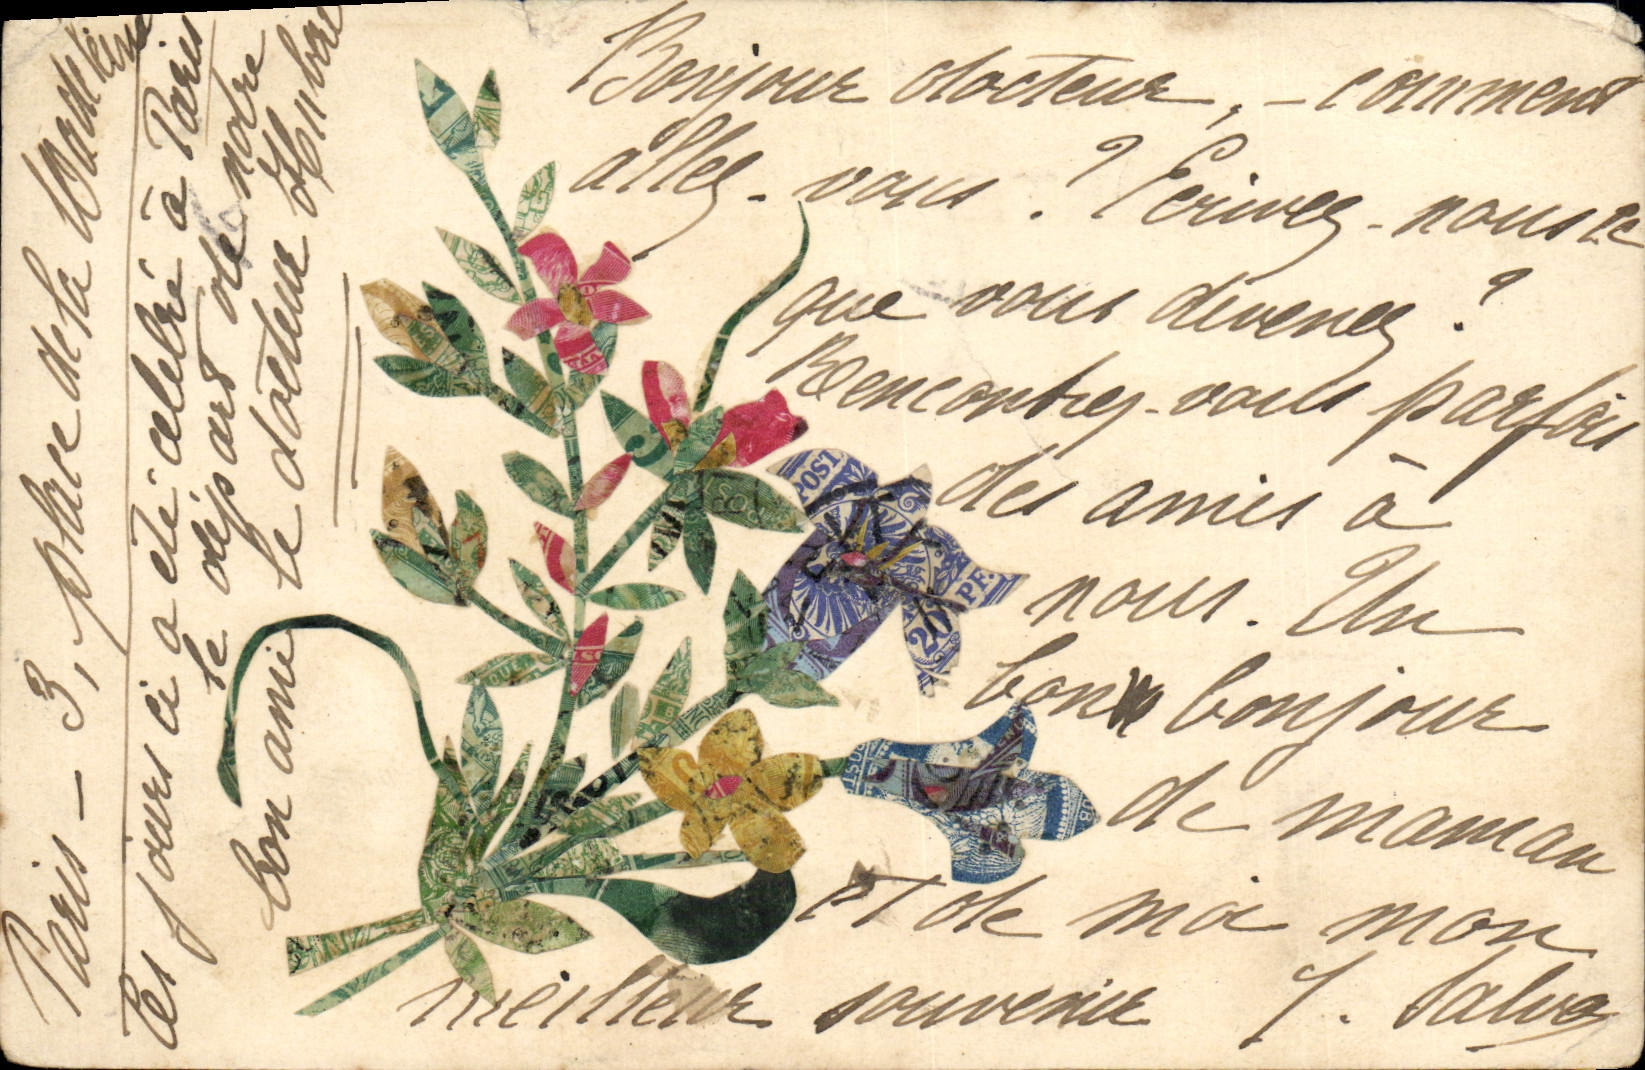 Bonjour docteur, - comment
allez-vous ? Ecrivez-nous ce
que vous devenez ?
Rencontrez-vous parfois
des amis à
nous. Un
bon bonjour
de maman
et de moi mon
meilleur souvenir J. Salvez
Paris - 3, place de la
Ces jours ci a été célébré à Paris
le départ de notre
bon ami le docteur
POST
20 PF.